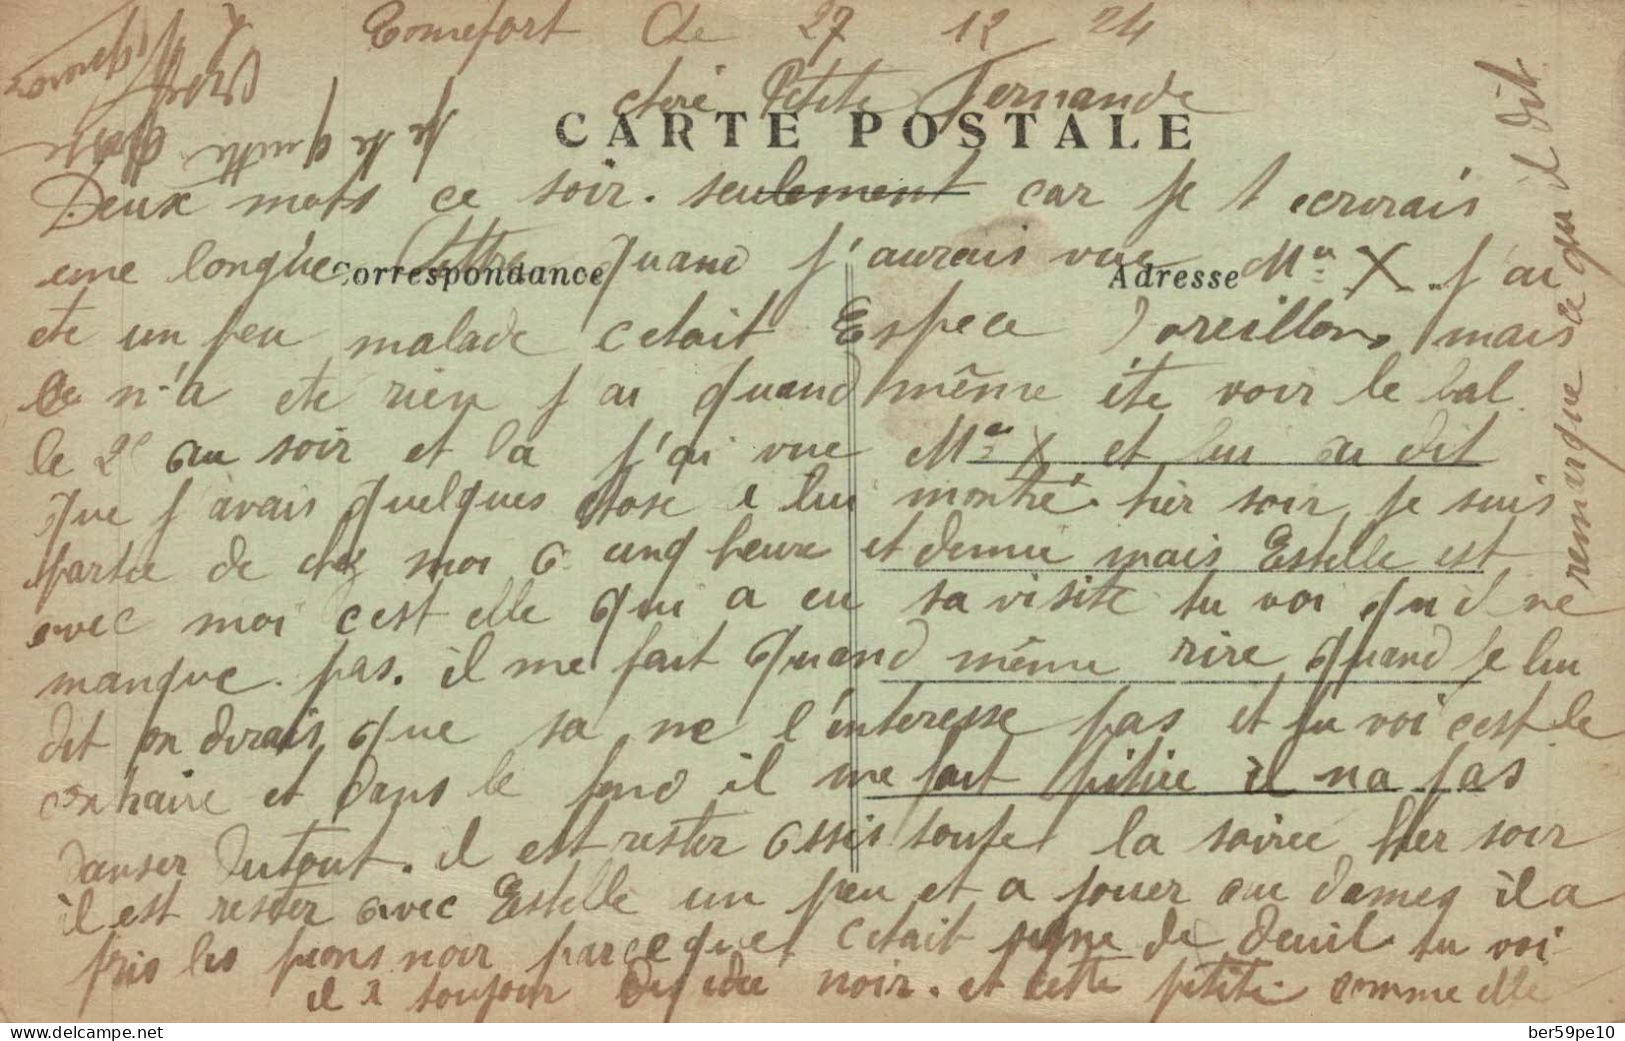 Tonnefort le 27 12 24
chere Petite Fernande
CARTE POSTALE
Deux mots ce soir. seulement car je t ecrirais
une longue lettre quand j'aurais vue Mr X. j'ai
Correspondance
Adresse
ete un peu malade cetait Espece d oreillons mais
ce n'a ete rien j ai quand même éte voir le bal
le 25 au soir et la j'ai vue Mr X et lui ai dit
que j avais quelques chose a lui montré. hier soir je suis
partie de chez moi a cinq heure et demie mais Estelle est
avec moi cest elle qui a eu sa visite tu voi qu il ne
manque pas. il me fait quand même rire quand je lui
dit on dirais que sa ne l'interesse pas et tu voi cest le
contraire et dans le fond il me fait pitiée il na pas
danser dutout. il est rester assis toute la soirée hier soir
il est rester avec Estelle un peu et a jouer au dames il a
pris les pions noir parceque cetait signe de deuil tu voi
il a toujour des idée noir. et cette petite comme elle
remarque ce qu il dit
je te quitte